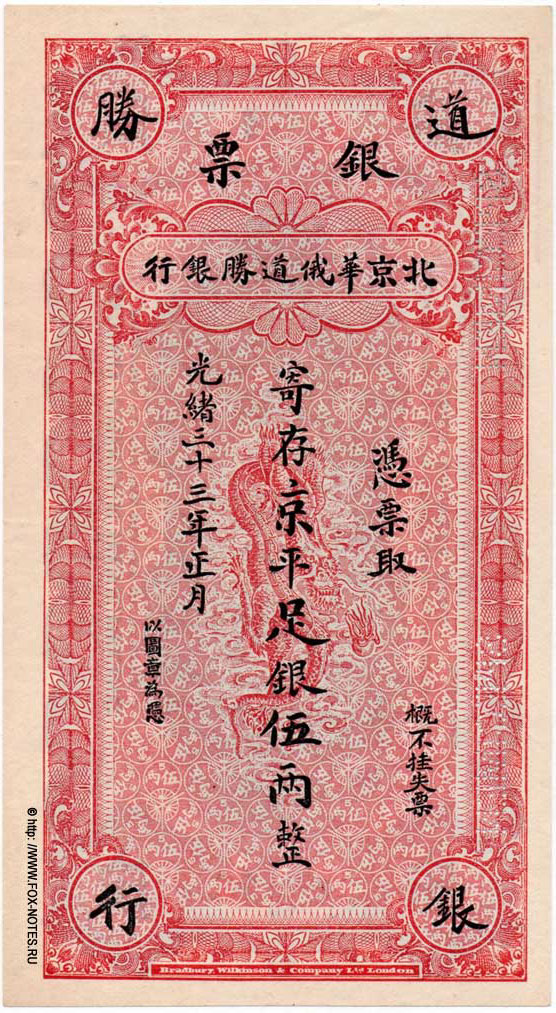 道勝
銀行
銀票
北京華俄道勝銀行
憑票取
概不挂失票
寄存京平足銀伍兩整
光緒三十三年正月
以圖章為憑
Bradbury, Wilkinson & Company Ltd London
© http: //WWW.FOX-NOTES.RU